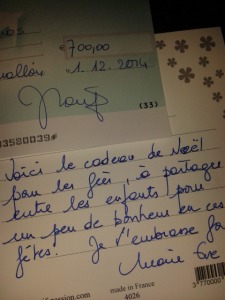 € 700,00
1.12.2014
(33)
Voici le cadeau de Noël
pour les fées, à partager
entre les enfants pour
un peu de bonheur en ces
fêtes. Je t'embrasse
Marie Eve
made in France
4026